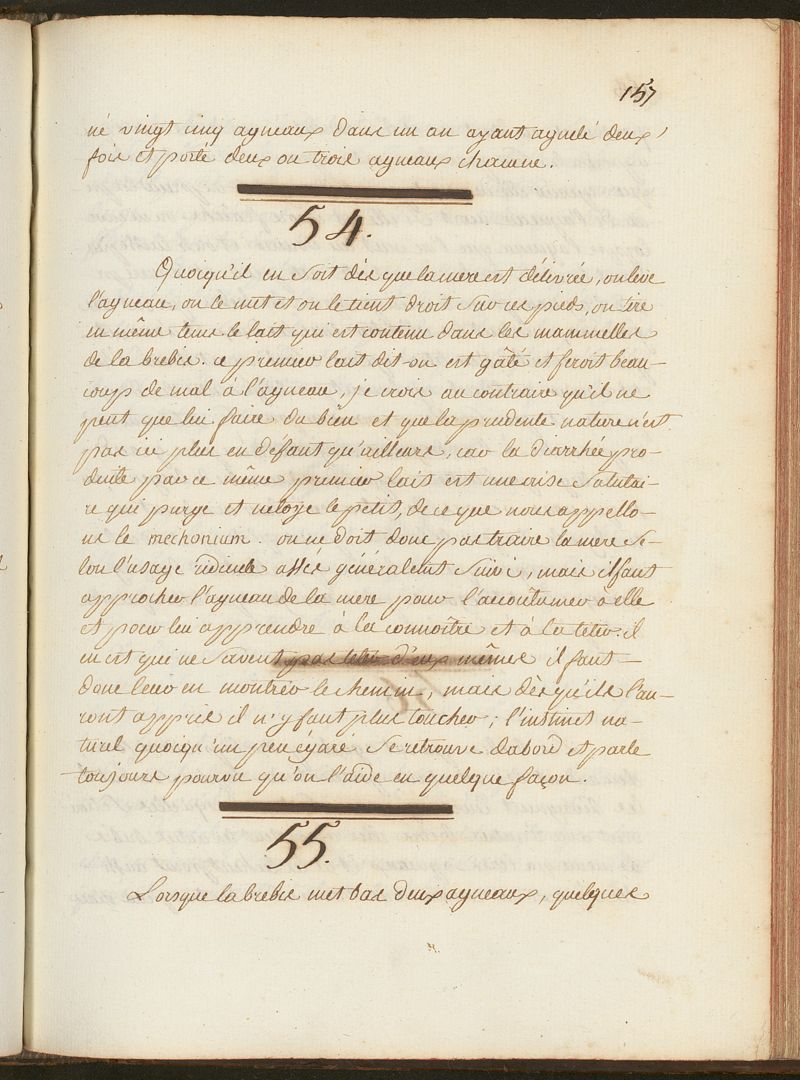 157
né vingt cinq agneaux dans un an ayant agnelé deux
fois et porté deux ou trois agneaux chacune.
54.
Quoiqu'il en soit dès que la mere est délivrée, on leve
l'agneau, on le met et on le tient droit sur ses pieds, on tire
en même tems le lait qui est contenu dans les mammelles
de la brebis. ce premier lait dit-on est gâté et feroit beau-
coup de mal à l'agneau, je crois au contraire qu'il ne
peut que lui faire du bien et que la prudente nature n'est
pas ici plus en défaut qu'ailleurs, car la diarrhée pro-
duite par ce même premier lait est une crise salutai-
re qui purge et netoye le petit, de ce que nous appello-
ns le mechonium. on ne doit donc pas traire la mere se-
lon l'usage ridicule assés généralemt suivi, mais il faut
approcher l'agneau de la mere pour l'accoutumer à elle
et pour lui apprendre à la connoître et à la teter. il
en est qui ne savent pas teter d'eux mêmes il faut-
donc leur en montrer le chemin, mais dès qu'ils l'au-
ront appris il n'y faut plus toucher; l'instinct na-
turel quoiqu'un peu égaré se retrouve dabord et parle
toujours pourvu qu'on l'aide en quelque façon.
55.
Lorsque la brebis met bas deux agneaux, quelques